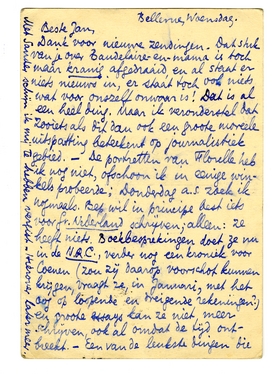 Bellevue, Woensdag.
Beste Jan,
Dank voor nieuwe zendingen. Dat stuk
van je over Baudelaire-en-mama is toch
maar kranig afgedraaid en al staat er
niets nieuws in, er staat toch ook niets
wat voor onszelf onwaar is! Dat is al
een heel ding. Maar ik veronderstel dat
zooiets als dit dan ook een groote moreele
uitspatting beteekent op journalistiek
gebied. — De portretten van Florelle heb
ik nog niet, ofschoon ik in eenige win-
kels probeerde; Donderdag a.s. zoek ik
nogmaals. Bep wil in principe best iets
voor Gr. Nederland schrijven, alleen: ze
heeft niets. Boekbesprekingen doet ze nu
in de N.R.C., verder nog een kroniek voor
Coenen (zou zij daarop voorschot kunnen
krijgen, vraagt ze, in Januari, met het
oog op loopende en dreigende rekeningen?)
en groote essays kan ze niet, meer
schrijven, ook al omdat de tijd ont-
breekt. — Een van de leukste dingen die